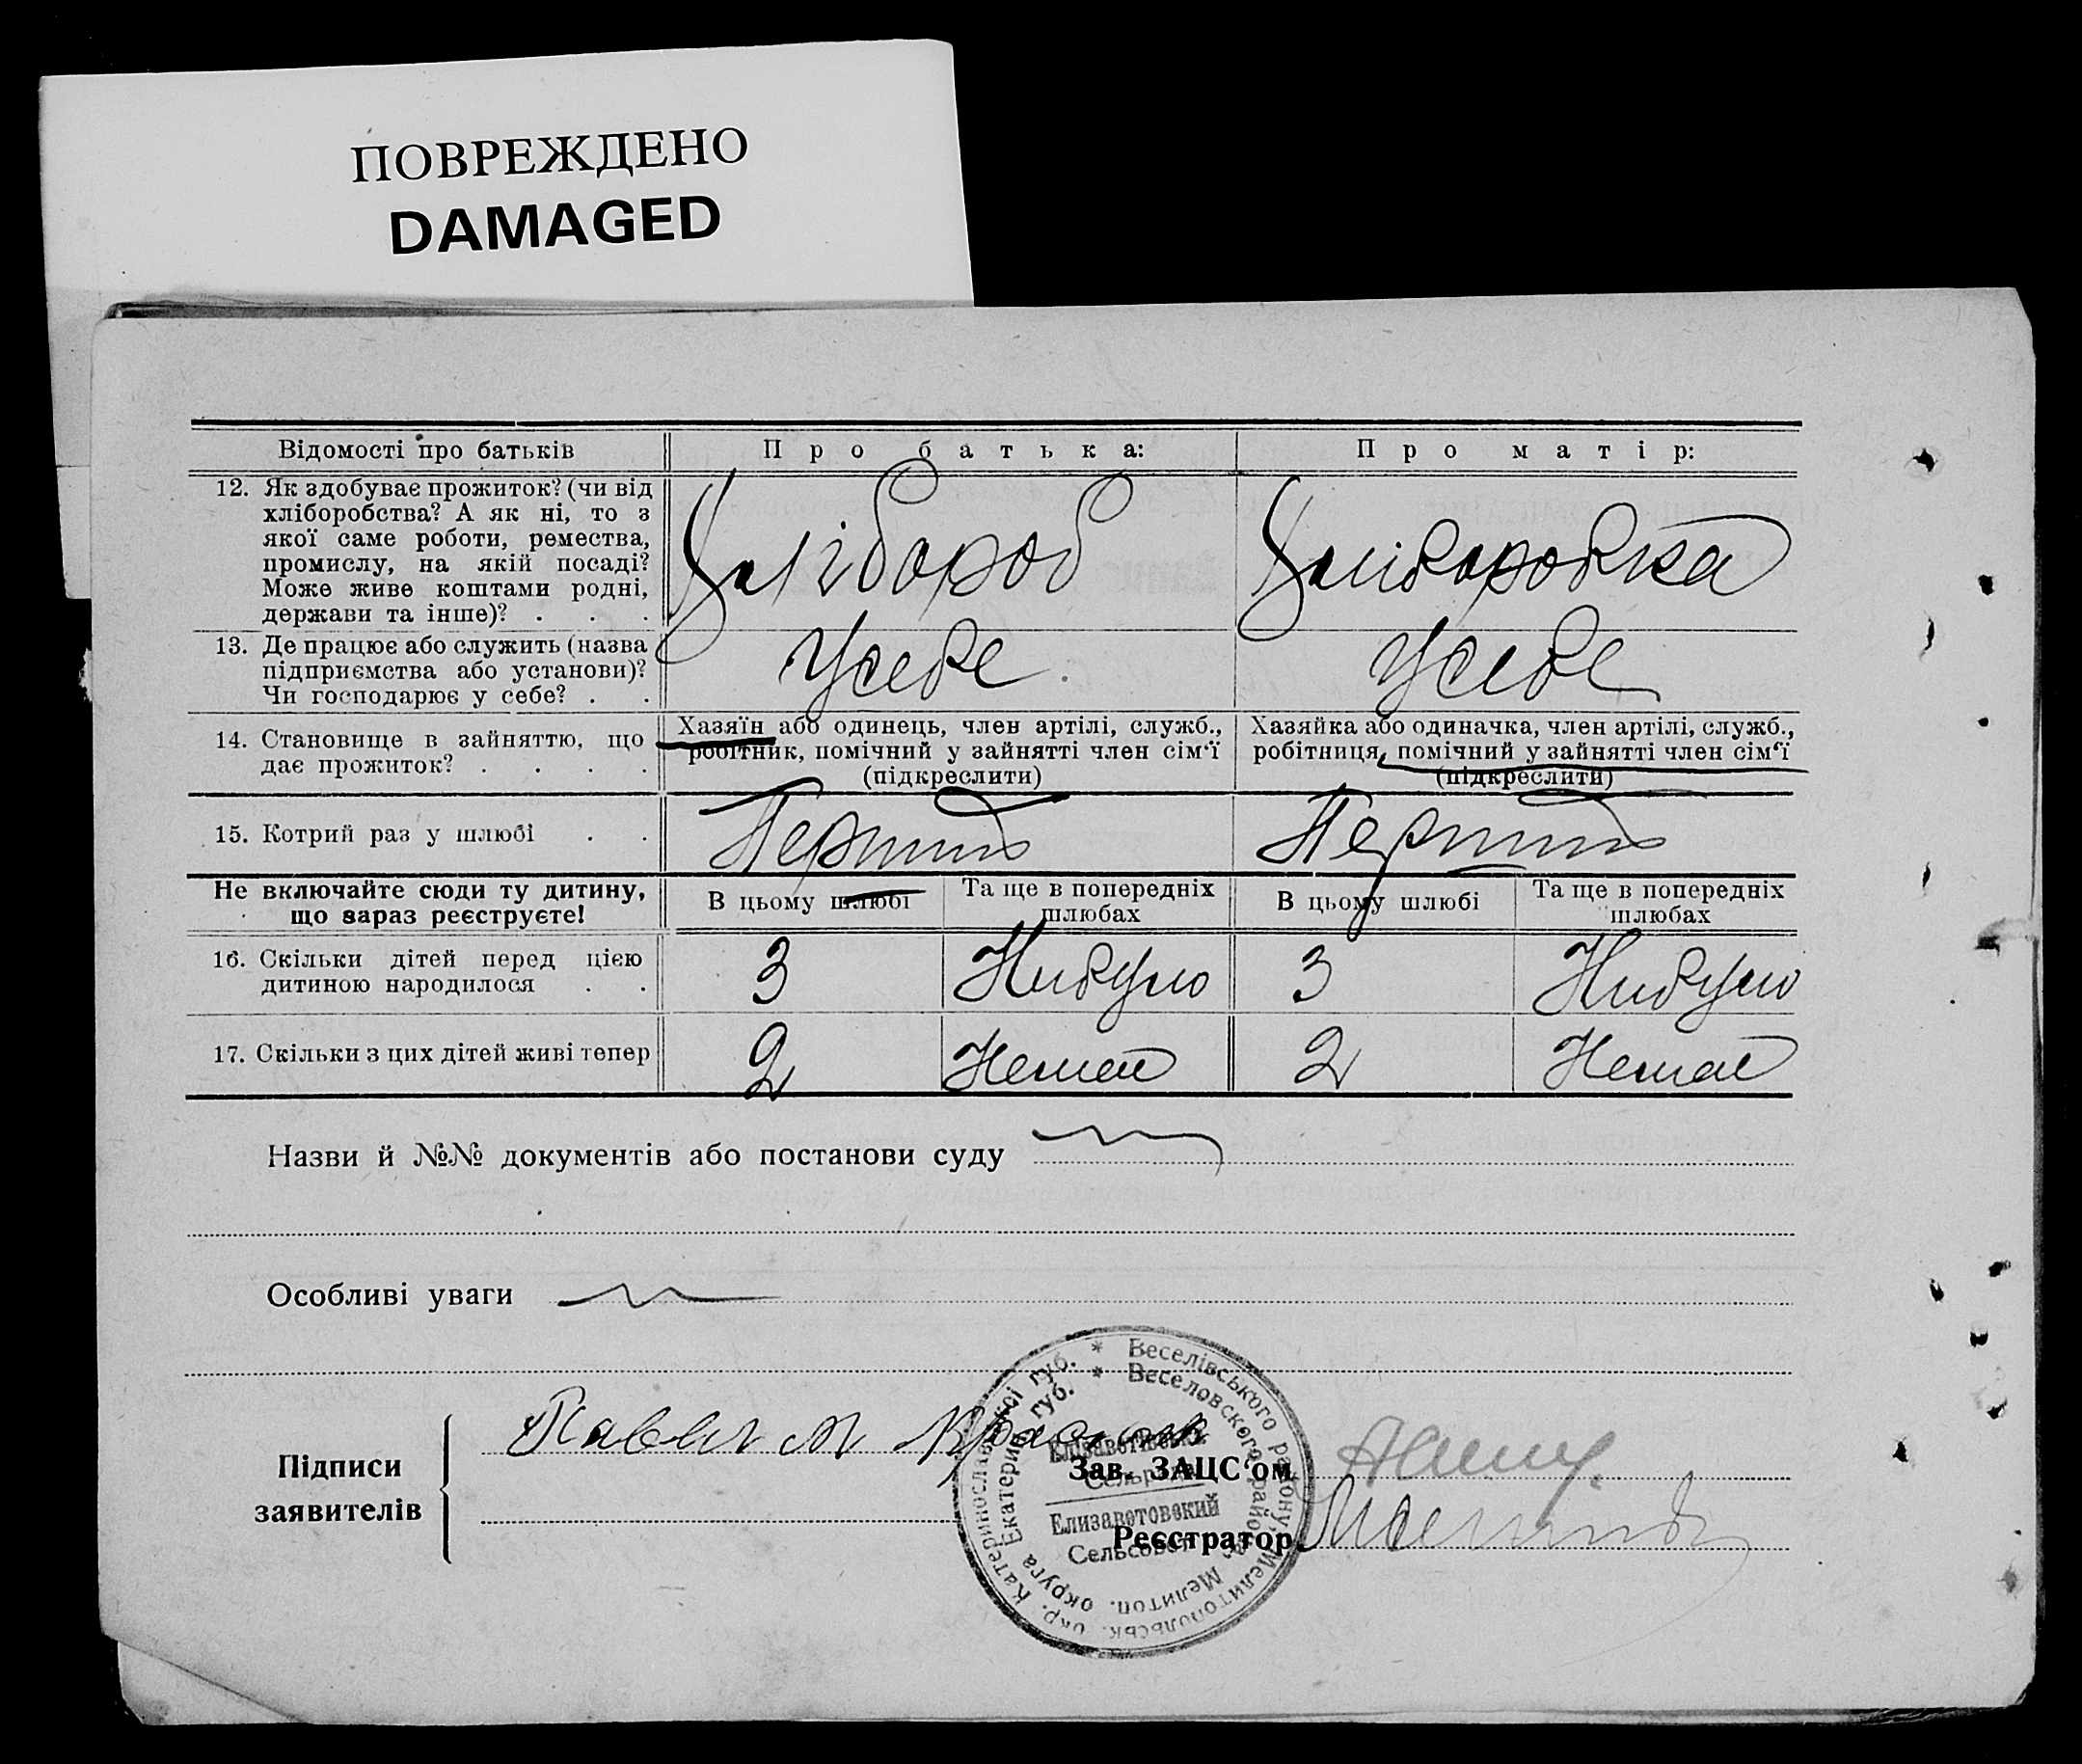 ПОВРЕЖДЕНО
DAMAGED
Відомості про батьків
Про батька:
Про матір:
12. Як здобуває прожиток? (чи від
хліборобства? А як ні, то з
якої саме роботи, ремества,
промислу, на якій посаді?
Може живе коштами родні,
держави та інше)? . . .
Хлібороб
Хліборобка
13. Де працює або служить (назва
підприємства або установи)?
Чи господарює у себе? . .
Усебе
Усебе
14. Становище в зайняттю, що
дає прожиток? . . . .
Хазяїн або одинець, член артілі, служб.,
робітник, помічний у зайнятті член сім‘ї
(підкреслити)
Хазяйка або одиначка, член артілі, служб.,
робітниця, помічний у зайнятті член сім‘ї
(підкреслити)
15. Котрий раз у шлюбі . .
Перший
Перший
Не включайте сюди ту дитину,
що зараз реєструєте!
В цьому шлюбі
Та ще в попередніх
шлюбах
В цьому шлюбі
Та ще в попередніх
шлюбах
16. Скільки дітей перед цією
дитиною народилося . .
3
Нибуло
3
Нибуло
17. Скільки з цих дітей живі тепер
2
Немає
2
Немає
Назви й №№ документів або постанови суду
Особливі уваги
Підписи
заявителів
Зав. ЗАЦС‘ом
Реєстратор
* Веселівського району, Мелитопольськ. окр. Катеринославської губ.
* Веселовского района Мелитоп. округа Екатерин. губ.
Єлізаветівська
Сельрада
Елизаветовский
Сельсовет